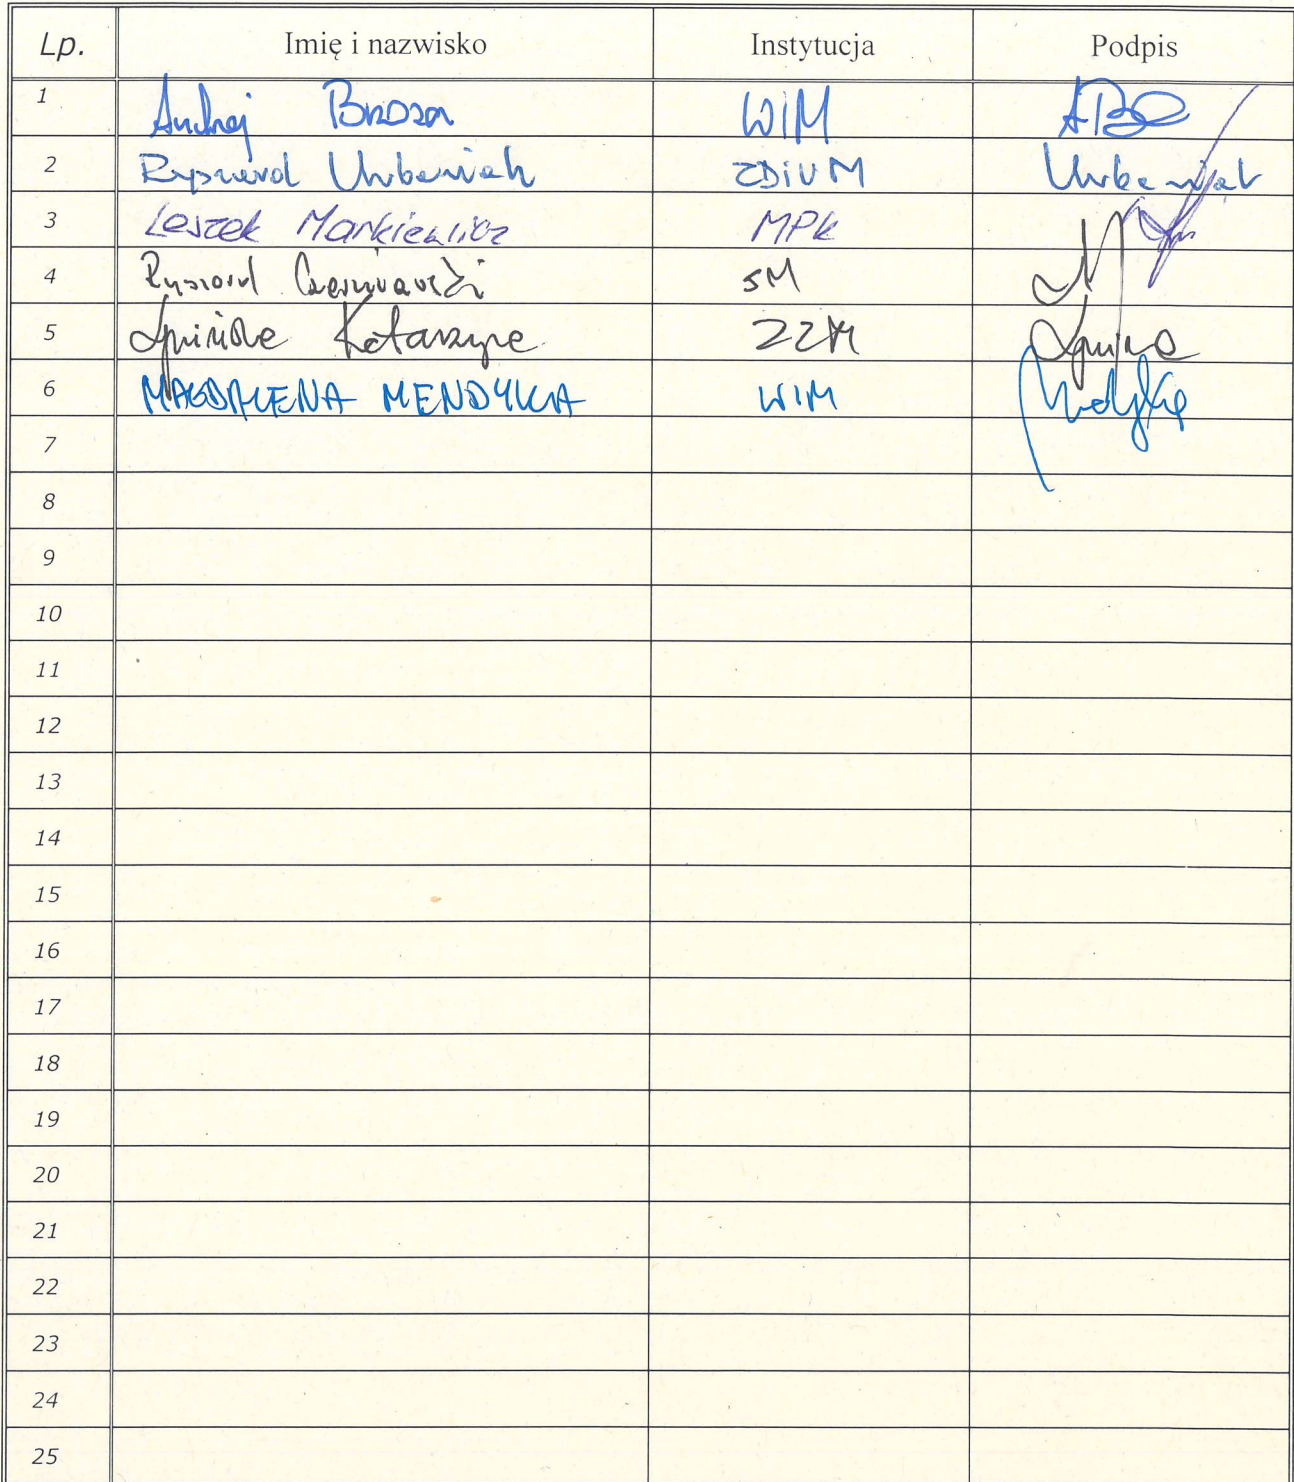 Lp. Imię i nazwisko Instytucja Podpis
1 Andrzej WIM
2 Ryszard Urbaniak ZDiUM Urbaniak
3 Leszek Markiewicz MPK
4 Ryszard SM
5 Katarzyna ZZM
6 MAGDALENA MENDYKA WIM
7
8
9
10
11
12
13
14
15
16
17
18
19
20
21
22
23
24
25